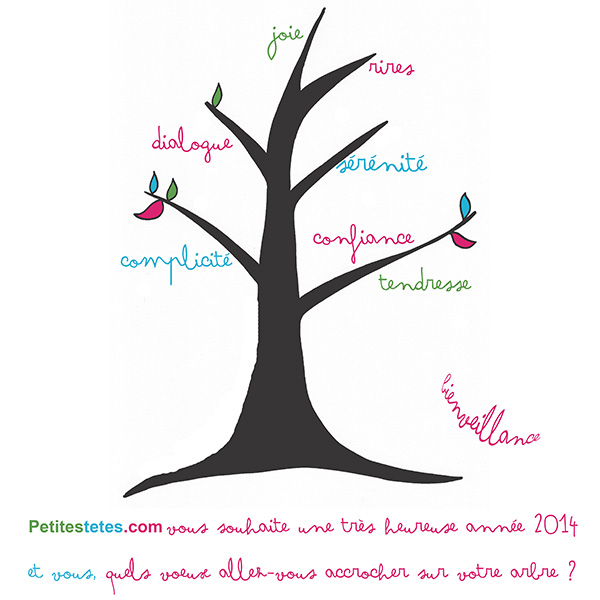 joie
rires
dialogue
sérénité
confiance
complicité
tendresse
bienveillance
Petitestetes.com vous souhaite une très heureuse année 2014
et vous, quels voeux allez-vous accrocher sur votre arbre ?